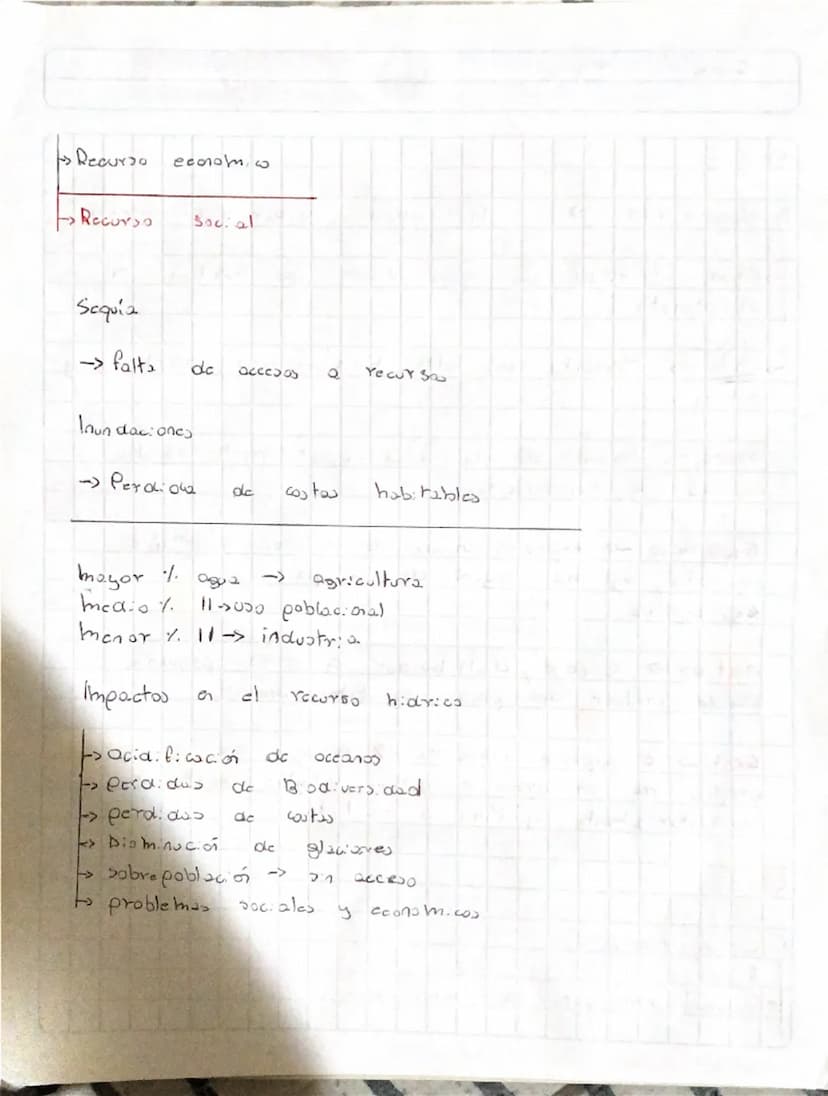 → Recurso economico
→ Recurso social
Sequía
→ falta de accesos a recursos
Inundaciones
→ Perdida de costas habitables
mayor % agua → agricultura
medio % 11 → uso poblacional
menor % 11 → industria
Impactos en el recurso hidrico
→ acidificación de oceanos
→ perdidas de Biodiversidad
→ perdidas de costas
→ Disminución de glaciares
→ sobrepoblación → sin acceso
→ problemas sociales y economicos